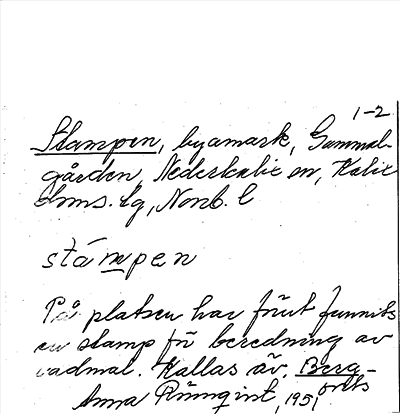 1-2
Stampen, byamark, Gammal-
gården, Nederkalix sn, Kalix
tlms. lg, Norrb. l
stámpen
På platsen har förut funnits
en stamp för beredning av
vadmal. Kallas äv. Berg-
Anna Rönnqvist, 1951